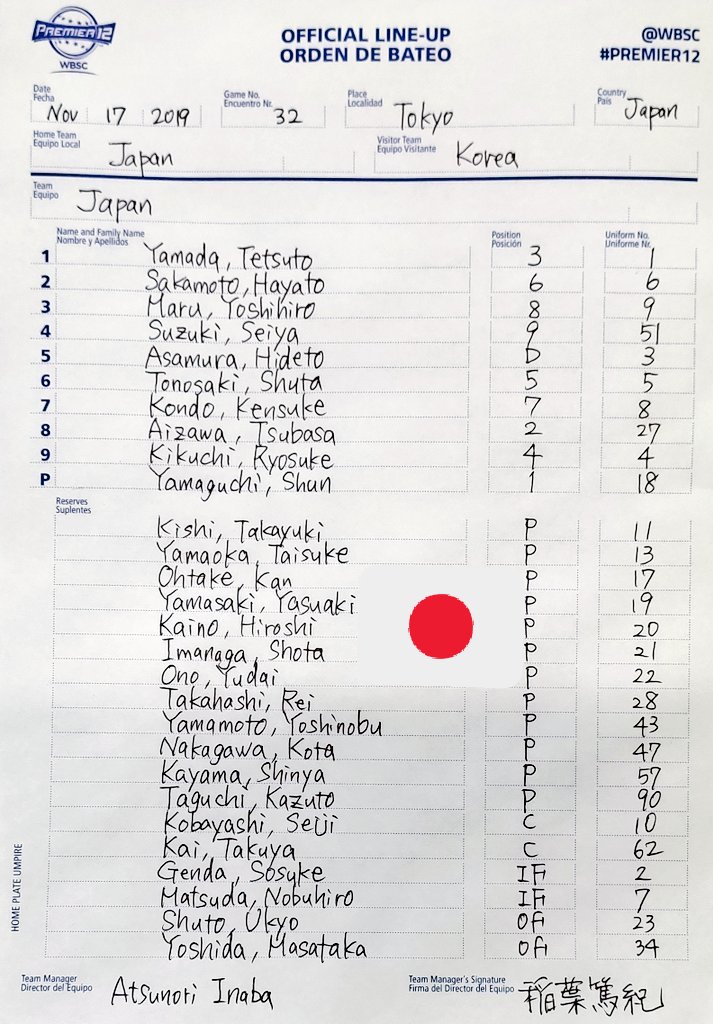 PREMIER 12
WBSC
OFFICIAL LINE-UP
ORDEN DE BATEO
@WBSC
#PREMIER12
Date
Fecha
Nov 17 2019
Game No.
Encuentro Nr.
32
Place
Localidad
Tokyo
Country
País
Japan
Home Team
Equipo Local
Japan
Visitor Team
Equipo Visitante
Korea
Team
Equipo
Japan
Name and Family Name
Nombre y Apellidos
Position
Posición
Uniform No.
Uniforme Nr.
1 Yamada, Tetsuto 3 1
2 Sakamoto, Hayato 6 6
3 Maru, Yoshihiro 8 9
4 Suzuki, Seiya 9 51
5 Asamura, Hideto D 3
6 Tonosaki, Shuta 5 5
7 Kondo, Kensuke 7 8
8 Aizawa, Tsubasa 2 27
9 Kikuchi, Ryosuke 4 4
P Yamaguchi, Shun 1 18
Reserves
Suplentes
Kishi, Takayuki P 11
Yamaoka, Taisuke P 13
Ohtake, Kan P 17
Yamasaki, Yasuaki P 19
Kaino, Hiroshi P 20
Imanaga, Shota P 21
Ono, Yudai P 22
Takahashi, Rei P 28
Yamamoto, Yoshinobu P 43
Nakagawa, Kota P 47
Kayama, Shinya P 57
Taguchi, Kazuto P 90
Kobayashi, Seiji C 10
Kai, Takuya C 62
Genda, Sosuke IF 2
Matsuda, Nobuhiro IF 7
Shuto, Ukyo OF 23
Yoshida, Masataka OF 34
HOME PLATE UMPIRE
Team Manager
Director del Equipo
Atsunori Inaba
Team Manager's Signature
Firma del Director del Equipo
稲葉篤紀